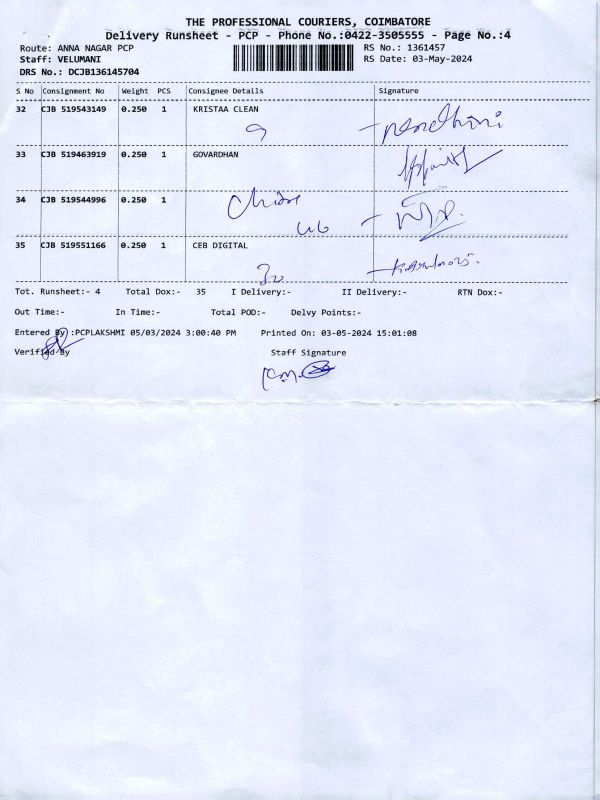 THE PROFESSIONAL COURIERS, COIMBATORE
Delivery Runsheet - PCP - Phone No.:0422-3505555 - Page No.:4
Route: ANNA NAGAR PCP RS No.: 1361457
Staff: VELUMANI RS Date: 03-May-2024
DRS No.: DCJB136145704
S No Consignment No Weight PCS Consignee Details Signature
32 CJB 519543149 0.250 1 KRISTAA CLEAN
33 CJB 519463919 0.250 1 GOVARDHAN
34 CJB 519544996 0.250 1
35 CJB 519551166 0.250 1 CEB DIGITAL
Tot. Runsheet:- 4 Total Dox:- 35 I Delivery:- II Delivery:- RTN Dox:-
Out Time:- In Time:- Total POD:- Delvy Points:-
Entered By :PCPLAKSHMI 05/03/2024 3:00:40 PM Printed On: 03-05-2024 15:01:08
Verified By Staff Signature